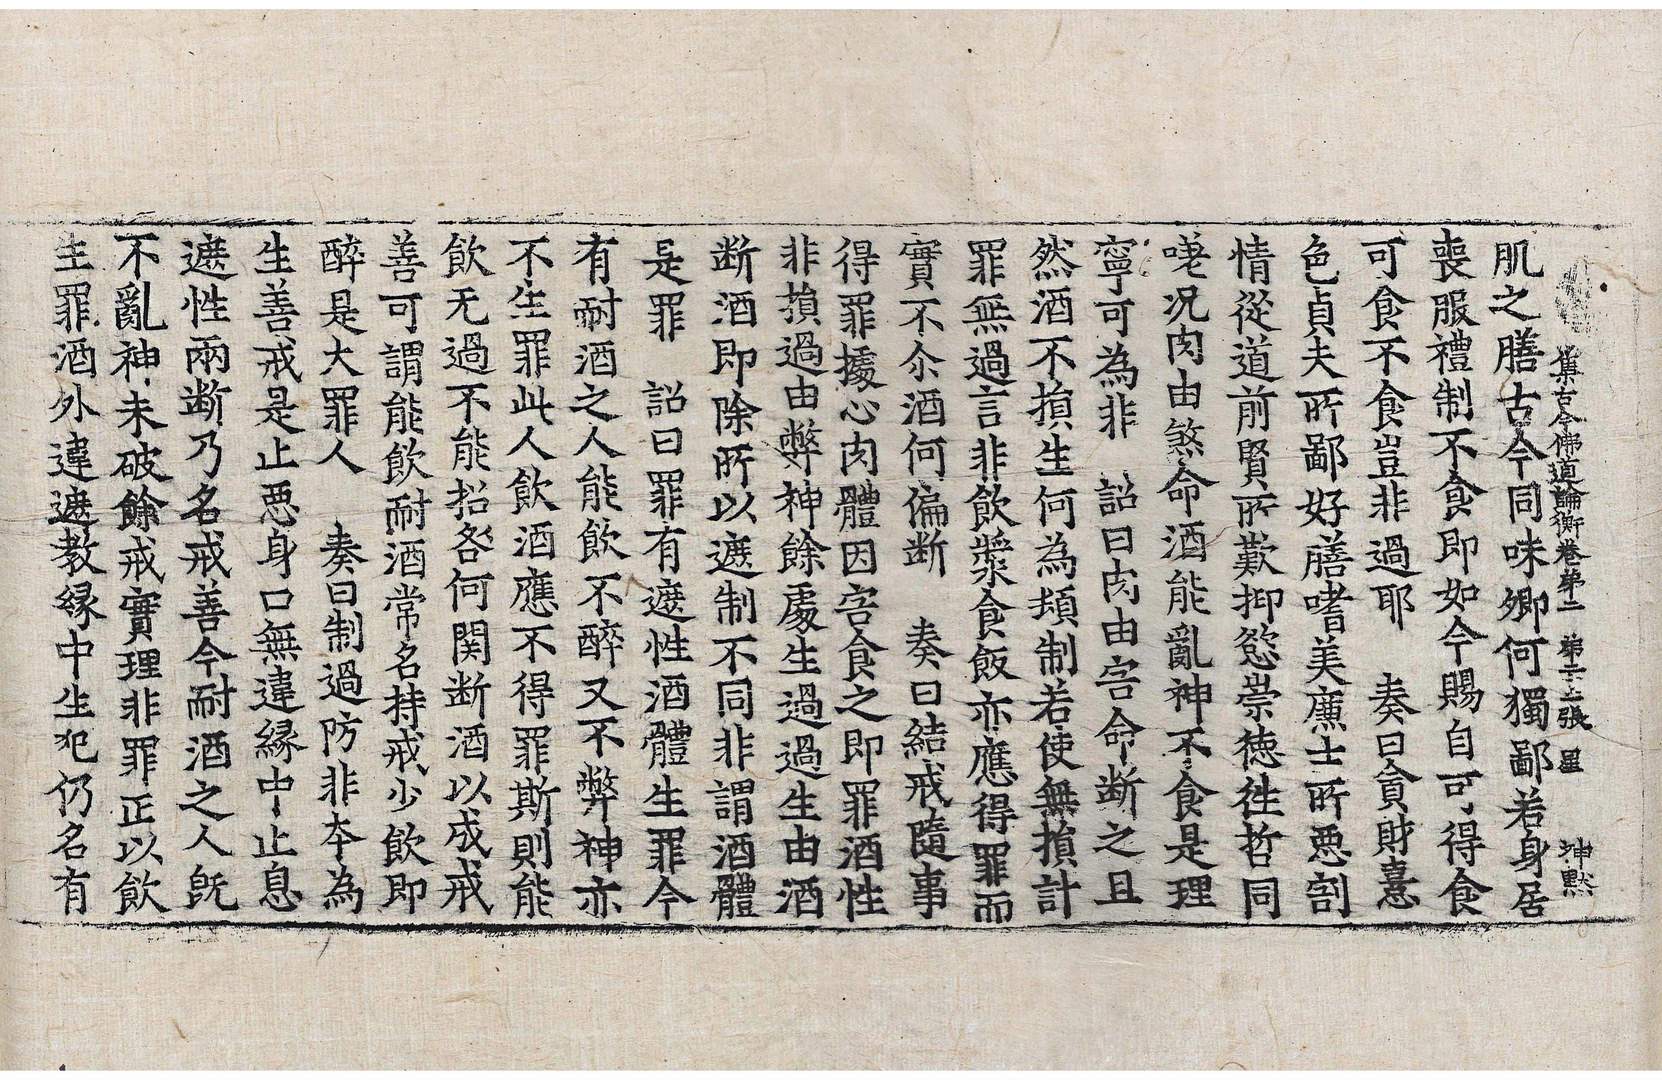 集古今佛道論衡卷第二 第二十七張 星 坤默
肌之膳古今同味卿何獨鄙若身居
喪服禮制不食即如今賜自可得食
可食不食豈非過耶 奏曰貪財憙
色貞夫所鄙好膳嗜美廉士所惡割
情從道前賢所歎抑慾崇德往哲同
嗟況肉由煞命酒能亂神不食是理
寧可為非 詔曰肉由害命断之且
然酒不損生何為頻制若使無損計
罪無過言非飲漿食飯亦應得罪而
實不尒酒何偏断 奏曰結戒隨事
得罪據心肉體因害食之即罪酒性
非損過由弊神餘處生過過生由酒
断酒即除所以遮制不同非謂酒體
是罪 詔曰罪有遮性酒體生罪今
有耐酒之人能飲不醉又不弊神亦
不生罪此人飲酒應不得罪斯則能
飲无過不能招咎何関断酒以成戒
善可謂能飲耐酒常名持戒少飲即
醉是大罪人 奏曰制過防非本為
生善戒是止惡身口無違緣中止息
遮性兩断乃名戒善今耐酒之人既
不亂神未破餘戒實理非罪正以飲
生罪酒外違遮教緣中生犯仍名有